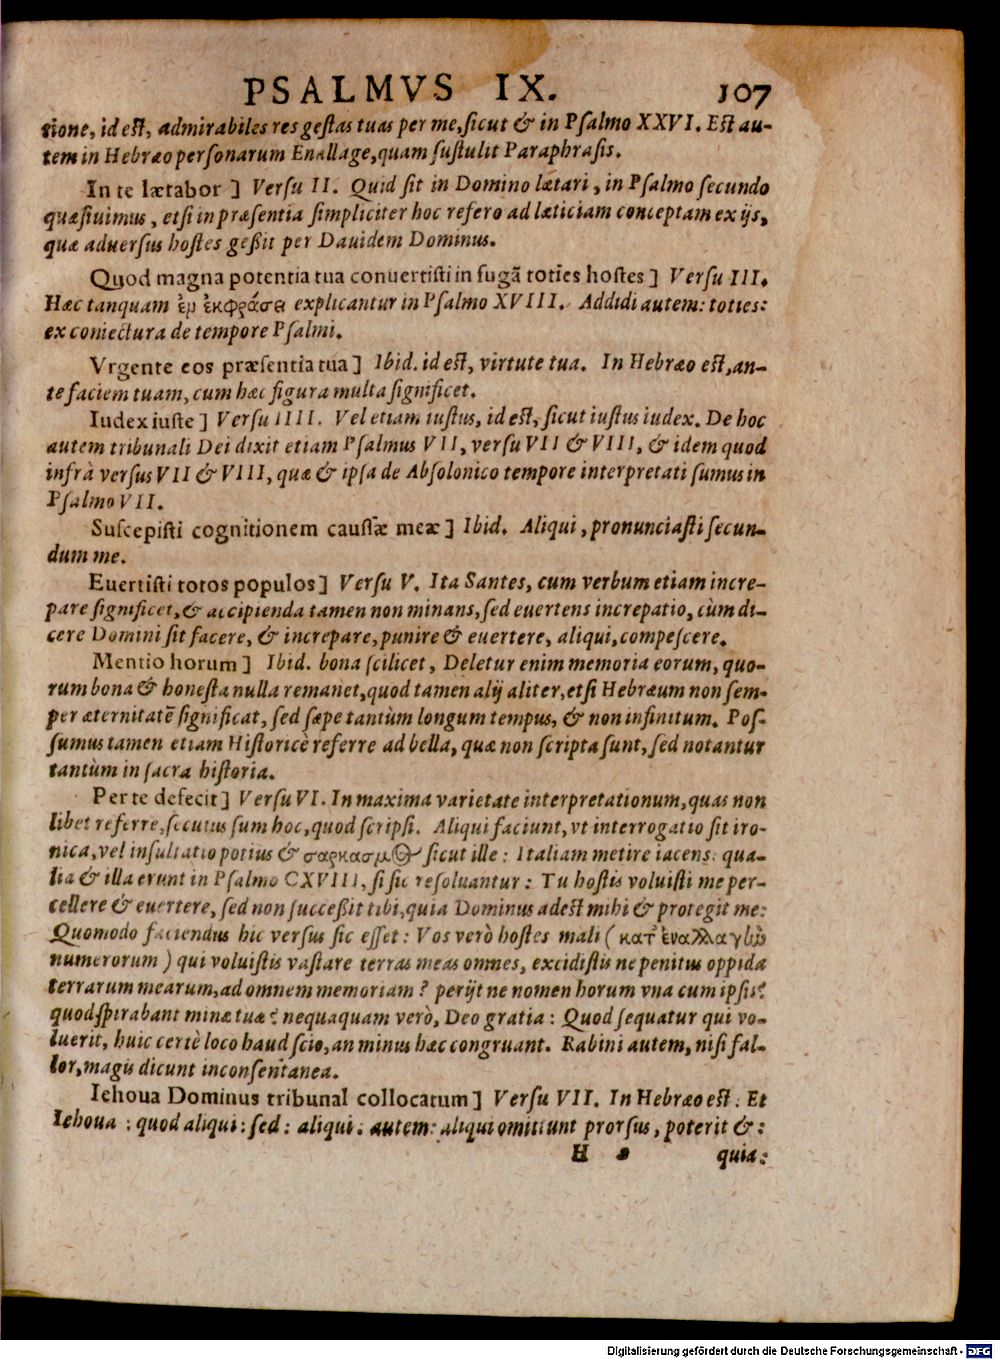 PSALMVS IX. 107
tione, id est, admirabiles res gestas tuas per me, sicut & in Psalmo XXVI. Est au-
tem in Hebræo personarum Enallage, quam sustulit Paraphrasis.
In te lætabor] Versu II. Quid sit in Domino lætari, in Psalmo secundo
quæsiuimus, etsi in præsentia simpliciter hoc refero ad læticiam conceptam ex ijs,
quæ aduersus hostes geßit per Dauidem Dominus.
Quod magna potentia tua conuertisti in fugã toties hostes] Versu III.
Hæc tanquam ἐν ἐκφράσει explicantur in Psalmo XVIII. Addidi autem: toties:
ex coniectura de tempore Psalmi.
Vrgente eos præsentia tua] Ibid. id est, virtute tua. In Hebræo est, an-
te faciem tuam, cum hæc figura multa significet.
Iudex iuste] Versu IIII. Vel etiam iustus, id est, sicut iustus iudex. De hoc
autem tribunali Dei dixit etiam Psalmus VII, versu VII & VIII, & idem quod
infrà versus VII & VIII, quæ & ipsa de Absolonico tempore interpretati sumus in
Psalmo VII.
Suscepisti cognitionem caussæ meæ] Ibid. Aliqui, pronunciasti secun-
dum me.
Euertisti totos populos] Versu V. Ita Santes, cum verbum etiam incre-
pare significet, & accipienda tamen non minans, sed euertens increpatio, cùm di-
cere Domini sit facere, & increpare, punire & euertere, aliqui, compescere.
Mentio horum] Ibid. bona scilicet, Deletur enim memoria eorum, quo-
rum bona & honesta nulla remanet, quod tamen alij aliter, etsi Hebræum non sem-
per æternitatẽ significat, sed sæpe tantùm longum tempus, & non infinitum. Pos-
sumus tamen etiam Historicè referre ad bella, quæ non scripta sunt, sed notantur
tantùm in sacra historia.
Per te defecit] Versu VI. In maxima varietate interpretationum, quas non
libet referre, secutus sum hoc, quod scripsi. Aliqui faciunt, vt interrogatio sit iro-
nica, vel insultatio potius & σαρκασμὸς sicut ille: Italiam metire iacens: qua-
lia & illa erunt in Psalmo CXVIII, si sic resoluantur: Tu hostis voluisti me per-
cellere & euertere, sed non succeßit tibi, quia Dominus adest mihi & protegit me:
Quomodo faciendus hic versus sic esset: Vos verò hostes mali (κατ' ἐναλλαγὼ
numerorum) qui voluistis vastare terras meas omnes, excidistis ne penitus oppida
terrarum mearum, ad omnem memoriam? perijt ne nomen horum vna cum ipsis?
quod spirabant minæ tuæ? nequaquam verò, Deo gratia: Quod sequatur qui vo-
luerit, huic certè loco haud scio, an minus hæc congruant. Rabini autem, nisi fal-
lor, magis dicunt inconsentanea.
Iehoua Dominus tribunal collocatum] Versu VII. In Hebræo est: Et
Iehoua: quod aliqui: sed: aliqui: autem: aliqui omittunt prorsus, poterit &:
H quia:
Digitalisierung gefördert durch die Deutsche Forschungsgemeinschaft - DFG